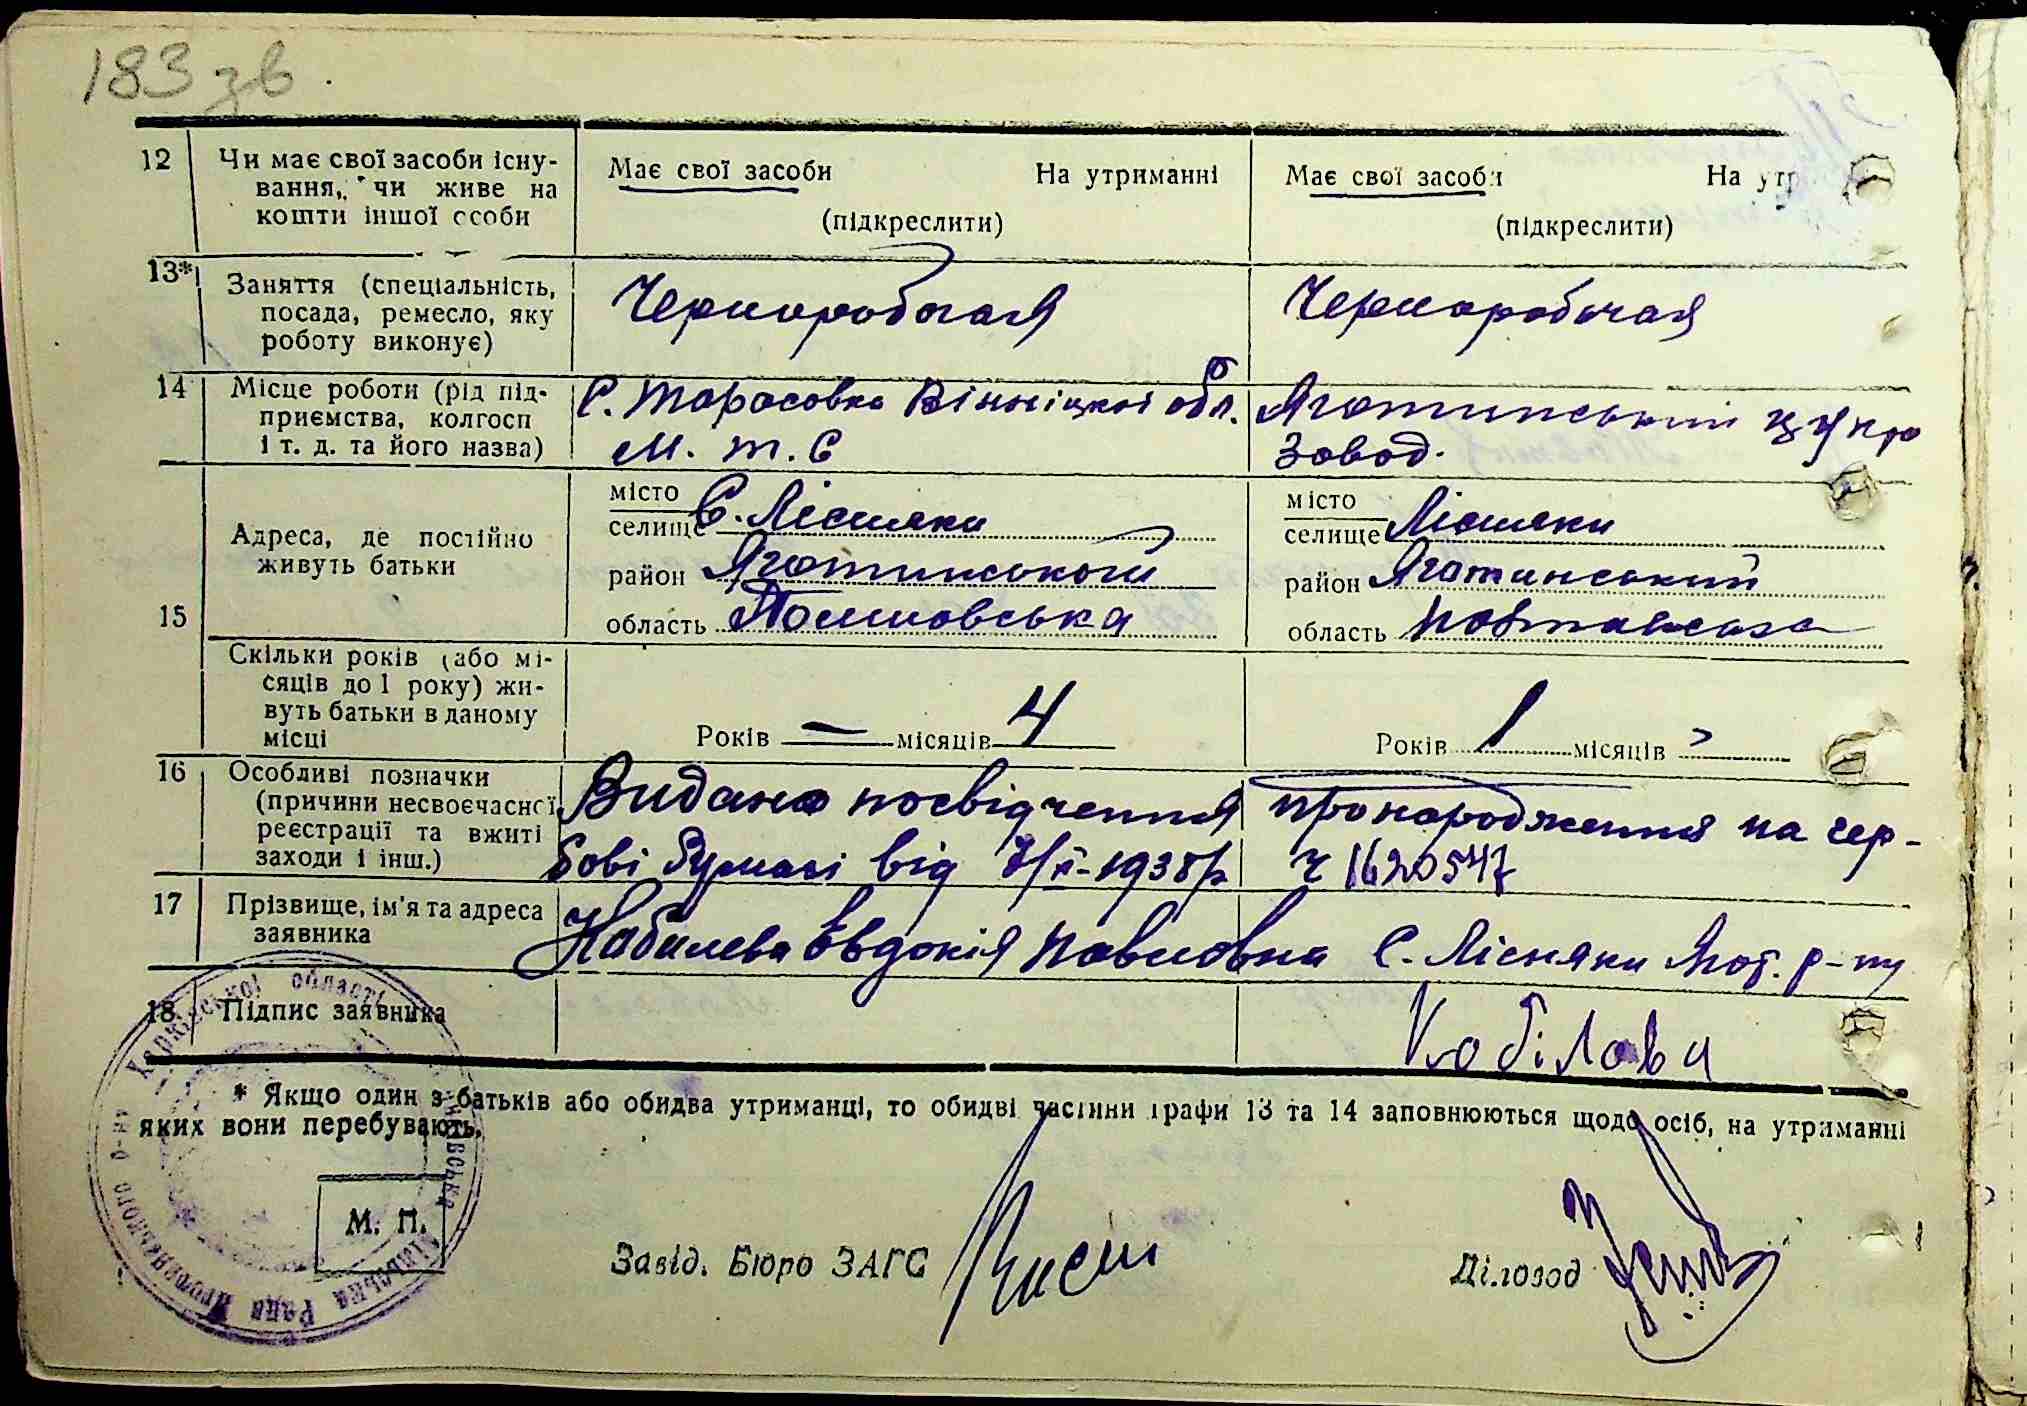 183 зв.
12 Чи має свої засоби існу-
вання, чи живе на
кошти іншої особи
Має свої засоби На утриманні
(підкреслити)
Має свої засоби На утр
(підкреслити)
13* Заняття (спеціальність,
посада, ремесло, яку
роботу виконує)
Черноробочая
Черноробочая
14 Місце роботи (рід під-
приємства, колгосп
і т. д. та його назва)
С. Тарасовка Вінніцкої обл.
М. Т. С
Яготинський цукро
завод.
15
Адреса, де постійно
живуть батьки
місто
селище С. Лісняки
район Яготинський
область
місто
селище Лісняки
район Яготинський
область Полтавська
Скільки років (або мі-
сяців до 1 року) жи-
вуть батьки в даному
місці
Років — місяців 4
Років 1 місяців
16 Особливі позначки
(причини несвоєчасної
реєстрації та вжиті
заходи і інш.)
Видано посвідчення про народження на гер-
бові бумазі від 1938 р ч 1620547
17 Прізвище, ім'я та адреса
заявника
Євдокія Павловна С. Лісняки Ягот. р-ну
18 Підпис заявника
Кобілова
* Якщо один з батьків або обидва утриманці, то обидві частини графи 13 та 14 заповнюються щодо осіб, на утриманні
яких вони перебувають.
Харківської області
Сільська Рада Яготинського р-ну
М. П.
Завід. Бюро ЗАГС
Діловод